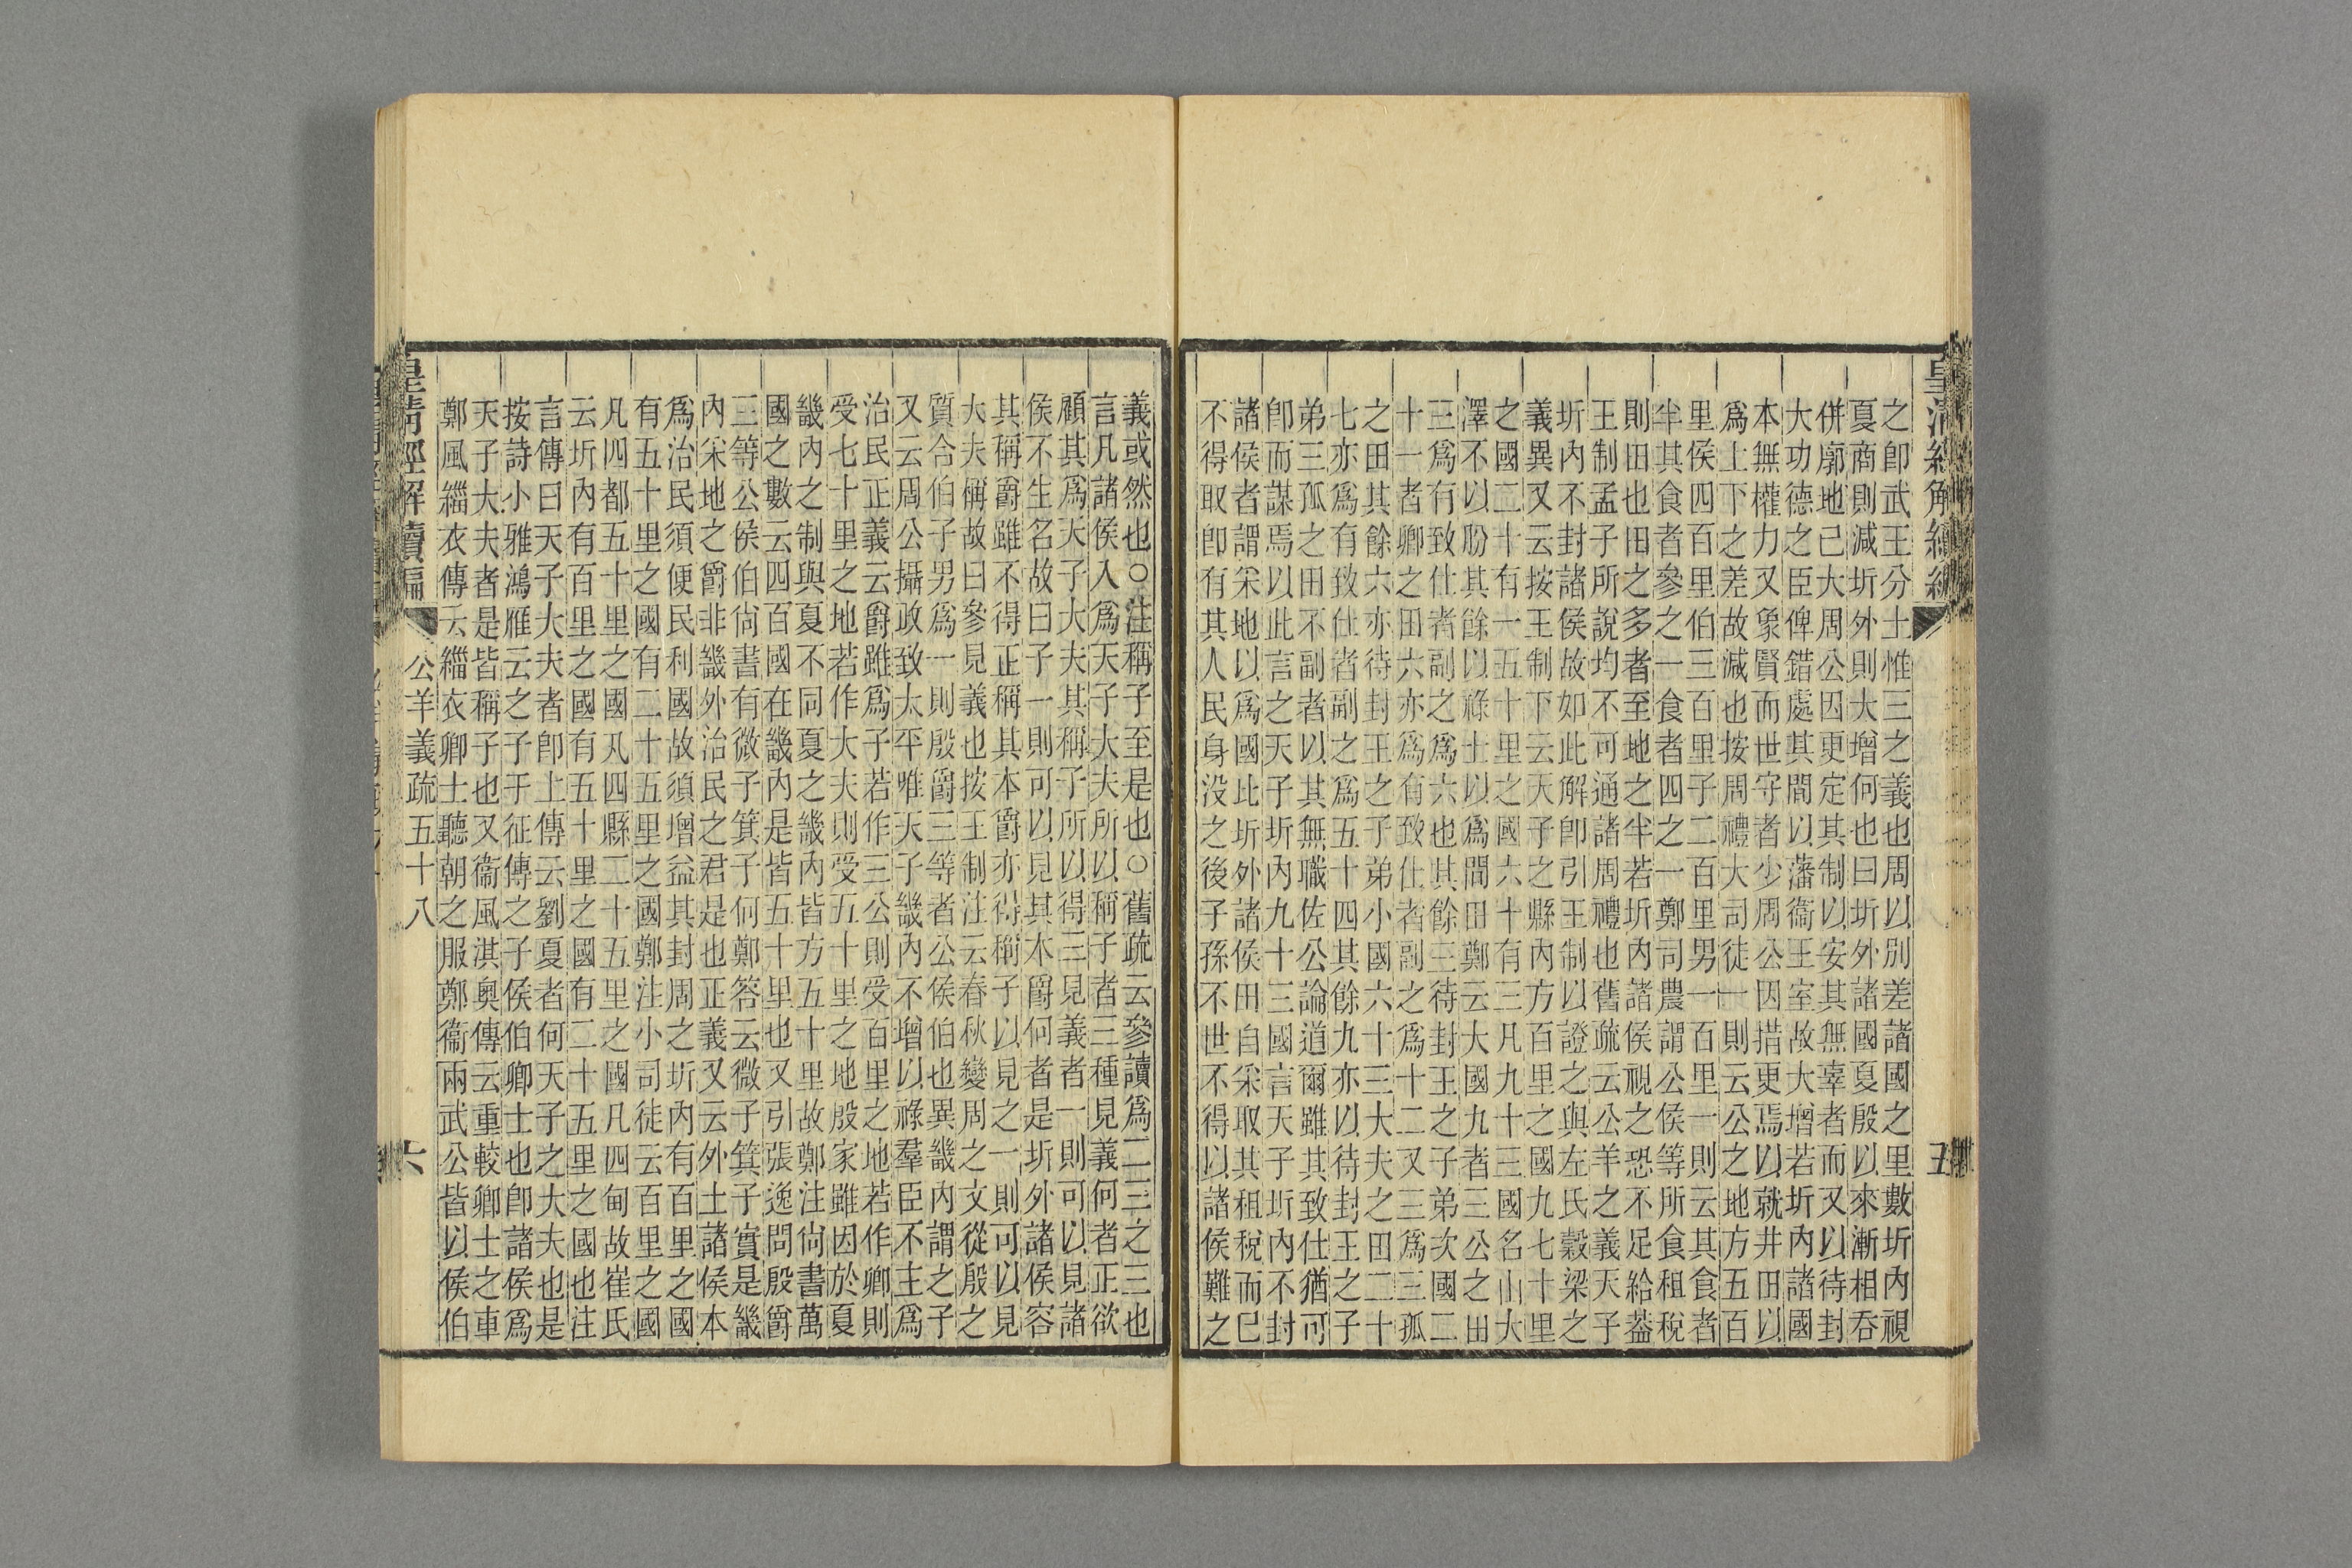 之卽武王分土惟三之義也周以別差諸國之里數圻內視
夏商則減圻外則大增何也曰圻外諸國夏殷以來漸相吞
併廓地己大周公因更定其制以安其無辜者而又以待封
大功德之臣俾錯處其間以藩衞王室故大增若圻內諸國
本無權力又象賢而世守者少周公因措更焉以就井田以
爲上下之差故減也按周禮大司徒一則云公之地方五百
里侯四百里伯三百里子二百里男一百里一則云其食者
半其食者參之一食者四之一鄭司農謂公侯等所食租稅
則田也田之多者至地之半若圻內諸侯視之恐不足給葢
王制孟子所說均不可通諸周禮也舊疏云公羊之義天子
圻內不封諸侯故如此解卽引王制以證之與左氏穀梁之
義異又云按王制下云天子之縣內方百里之國九七十里
之國二十有一五十里之國六十有三凡九十三國名山大
澤不以朌其餘以祿士以爲間田鄭云大國九者三公之田
三爲有致仕者副之爲六也其餘三待封王之子弟次國二
十一者卿之田六亦爲有致仕者副之爲十二又三爲三孤
之田其餘六亦待封王之子弟小國六十三大夫之田二十
七亦爲有致仕者副之爲五十四其餘九亦以待封王之子
弟三孤之田不副者以其無職佐公論道爾雖其致仕猶可
卽而謀焉以此言之天子圻內九十三國言天子圻內不封
諸侯者謂采地以爲國比圻外諸侯田自采取其租稅而巳
不得取卽有其人民身没之後子孫不世不得以諸侯難之
五
義或然也○注稱子至是也○舊疏云參讀爲二三之三也
言凡諸侯入爲天子大夫所以稱子者三種見義何者正欲
顧其爲天子大夫其稱子所以得三見義者一則可以見諸
侯不生名故曰子一則可以見其本爵何者是圻外諸侯容
其稱爵雖不得正稱其本爵亦得稱子以見之一則可以見
大夫稱故曰參見義也按王制注云春秋變周之文從殷之
質合伯子男爲一則殷爵三等者公侯伯也異畿內謂之子
又云周公攝政致太平唯天子畿內不增以祿羣臣不主爲
治民正義云爵雖爲子若作三公則受百里之地若作卿則
受七十里之地若作大夫則受五十里之地殷家雖因於夏
畿內之制與夏不同夏之畿內皆方五十里故鄭注尙書萬
國之數云四百國在畿內是皆五十里也又引張逸問殷爵
三等公侯伯尙書有微子箕子何鄭答云微子箕子實是畿
內采地之爵非畿外治民之君是也正義又云外土諸侯本
爲治民須便民利國故須增益其封周之圻內有百里之國
有五十里之國有二十五里之國鄭注小司徒云百里之國
凡四都五十里之國凡四縣二十五里之國凡四甸故崔氏
云圻內有百里之國有五十里之國有二十五里之國也注
言傳曰天子大夫者卽上傳云劉夏者何天子之大夫也是
按詩小雅鴻雁云之子于征傳之子侯伯卿士也卽諸侯爲
天子大夫者是皆稱子也又衞風淇奧傳云重較卿士之車
鄭風緇衣傳云緇衣卿士聽朝之服鄭衞兩武公皆以侯伯
皇清經解續編
公羊義疏五十八
六